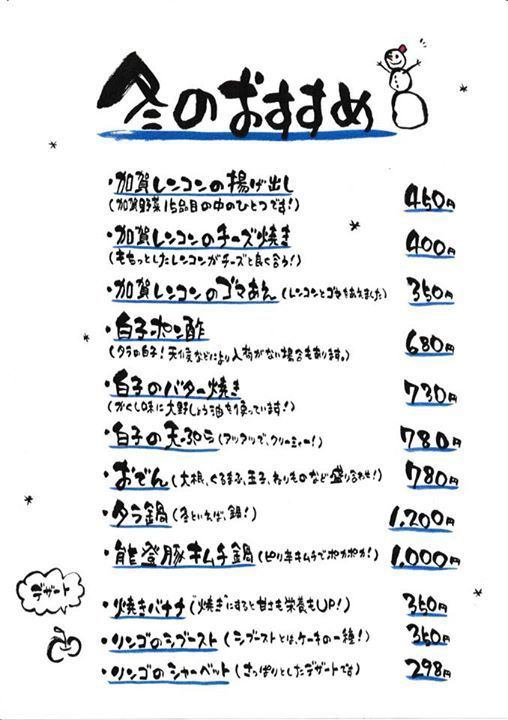 冬のおすすめ
・加賀レンコンの揚げ出し 450円
(加賀野菜15品目の中のひとつです!)
・加賀レンコンのチーズ焼き 400円
(ももっとしたレンコンがチーズと良く合う!)
・加賀レンコンのゴマあえ (レンコンとゴマをあえました) 350円
・白子ポン酢 680円
(タラの白子!天候などにより入荷がない場合もあります。)
・白子のバター焼き 730円
(かくし味に大野しょう油を使っています!)
・白子の天ぷら (アツアツで、クリーミー!) 780円
・おでん (大根、くるま麩、玉子、ねりものなど盛り合わせ!) 780円
・タラ鍋 (冬といえば、鍋!) 1,200円
・能登豚キムチ鍋 (ピリ辛キムチでポカポカ!) 1,000円
デザート
・焼きバナナ ("焼き"にすると甘さも栄養もUP!) 350円
・リンゴのシブースト (シブーストとは、ケーキの一種!) 350円
・リンゴのシャーベット (さっぱりとしたデザートです) 298円